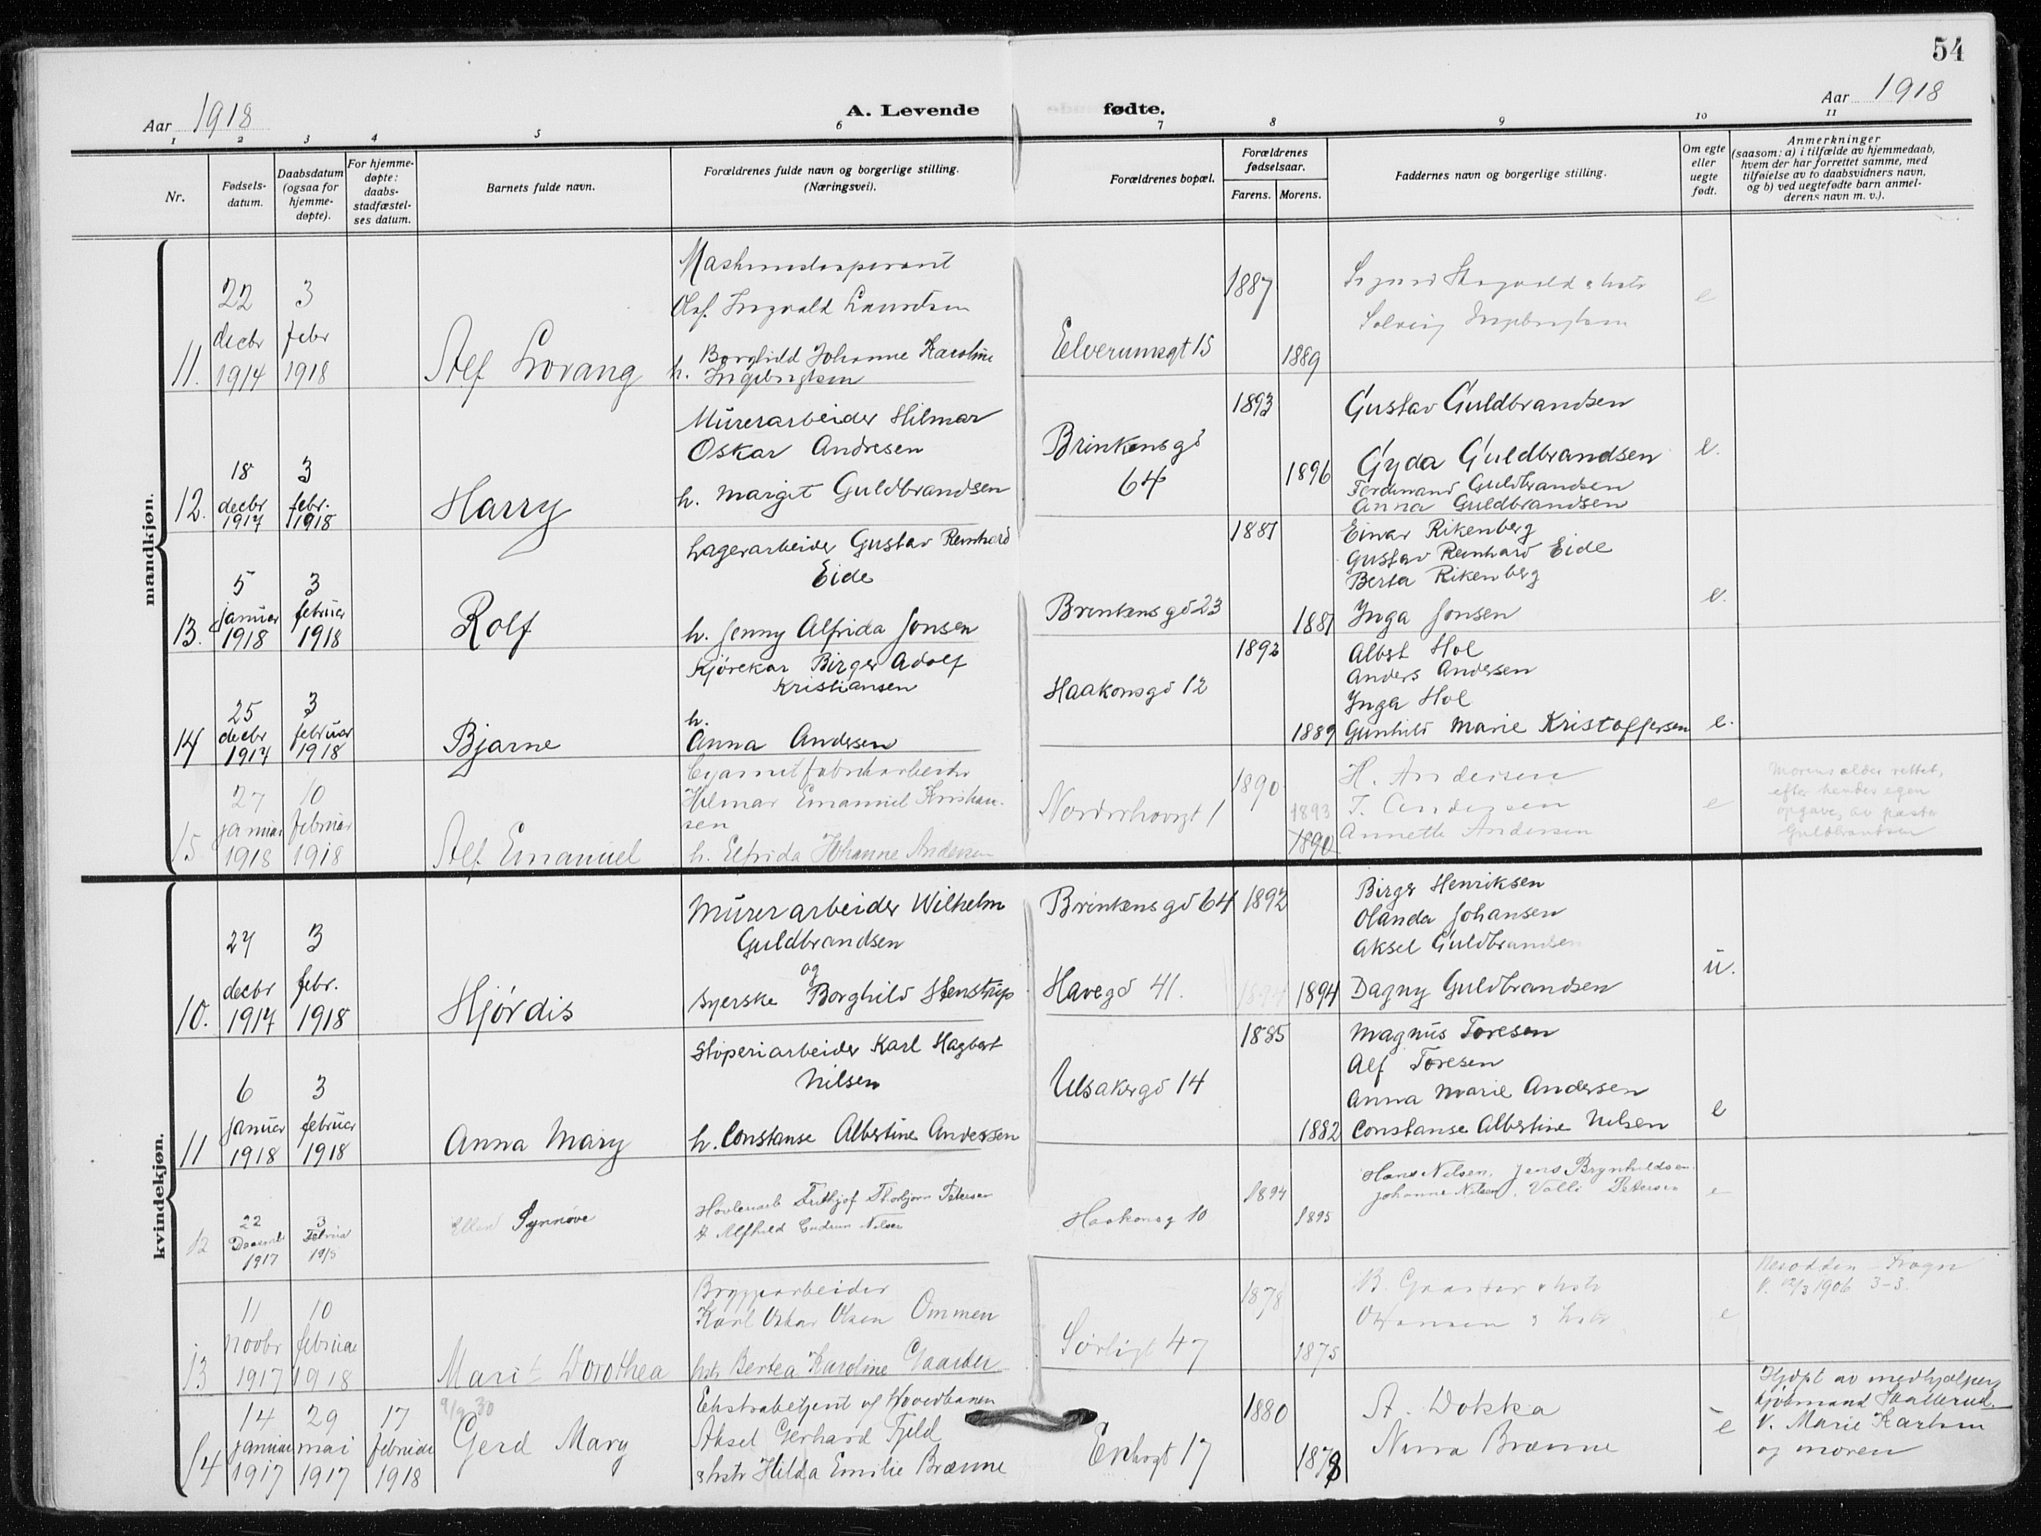 54
Aar 1918
A. Levende fødte.
Aar 1918
1 2 3 4 5 6 7 8 9 10 11
Nr.
Fødsels-
datum.
Daabsdatum
(ogsaa for
hjemme-
døpte).
For hjemme-
døpte:
daabs-
stadfæstel-
ses datum.
Barnets fulde navn.
Forældrenes fulde navn og borgerlige stilling.
(Næringsvei).
Forældrenes bopæl.
Forældrenes
fødselsaar.
Farens. Morens.
Faddernes navn og borgerlige stilling.
Om egte
eller
uegte
født.
Anmerkninger
(saasom: a) i tilfælde av hjemmedaab,
hvem der har forrettet samme, med
tilføielse av to daabsvidners navn,
og b) ved uegtefødte barn anmel-
derens navn m. v.).
mandkjøn.
11.
22
decbr
1914
3
febr
1918
Alf Lorang
Olaf Ingvald
h. Borghild Johanne Karoline
Ingebrigtsen
Elverumsgt 15
1887
1889
Solveig Ingebrigtsen
e
12.
18
decbr
1917
3
febr.
1918
Harry
Murerarbeider Hilmar
Oskar Andresen
h. Margit Guldbrandsen
Brinkensgd
64
1893
1896
Gustav Guldbrandsen
Gyda Guldbrandsen
Ferdinand Guldbrandsen
Anna Guldbrandsen
e.
13.
5
januar
1918
3
februar
1918
Rolf
Lagerarbeider Gustav Reinhard
Eide
h. Jenny Alfrida Jonsen
Brinkensgd 23
1881
1881
Einar Rikenberg
Gustav Reinhard Eide
Berta Rikenberg
Ynga Jonsen
e.
14
25
decbr
1917
3
februar
1918
Bjarne
Kjørekar Birger Adolf
Kristiansen
h.
Anna Andersen
Haakonsgd 12
1892
1889
Albert Hol
Anders Andersen
Ynga Hol
Gunhild Marie Kristoffersen
e.
15
27
januar
1918
10
februar
1918
Alf Emanuel
Hilmar Emanuel Kristian-
sen
h. Elfrida Johanne Andersen
Nordrehovgt 1
1890
1893
1890
H. Andersen
T. Andersen
Annette Andersen
e
Morens alder rettet,
efter hendes egen
opgave, av pastor
Guldbrandsen
kvindekjøn.
10.
27
decbr
1917
3
febr.
1918
Hjørdis
Murerarbeider Wilhelm
Guldbrandsen
og
syerske Borghild Stenstrup
Brinkensgd 64
Havegd 41.
1892
1894
1894
Birger Henriksen
Olanda Johansen
Aksel Guldbrandsen
Dagny Guldbrandsen
u.
11
6
januar
1918
3
februar
1918
Anna Mary
Støperiarbeider Karl Hagbert
Nilsen
h. Constanse Albertine Andersen
Ulsakergd 14
1885
1882
Magnus Toresen
Alf Toresen
Anna Marie Andersen
Constanse Albertine Nilsen
e
12
22
Decembr
1917
3
Februar
1918
Ellen Synnøve
Høvleriarb Fridtjof Thorbjørn Petersen
h Alfhild Gudrun Nilsen
Haakonsg 10
1894
1895
Hans Nilsen, Jens Brynhildsen
Johanne Nilsen, Valli Petersen
e
13
11
novbr
1917
10
februar
1918
Marit Dorothea
Bryggearbeider
Karl Oskar Olsen Ommen
hstr Bertea Karoline Gaarder
Sørligt 47
1878
1875
B. Gaarder & hstr
O Hansen & hstr
e
Nesodden - Frogn
V. 12/3 1906 3-3.
14
14
januar
1917
29
mai
1917
17
februar
1918
9/9 30
Gerd Mary
Ekstrabetjent v/ Hovedbanen
Aksel Gerhard Fjeld
& hstr Hilda Emilie Brænne
Enhørgt 17
1880
1878
A. Dokka
Nina Brænne
e
Hjdpt av medhjælper
V. Marie Karlsen
og moren